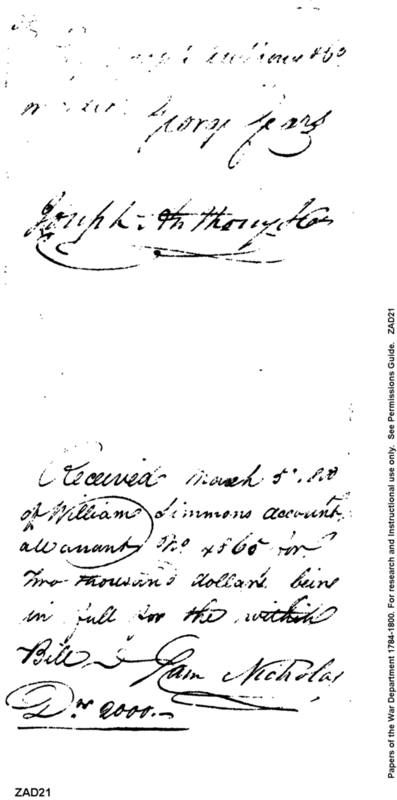 Geory Gears
Joseph Anthony & Co
Received March 5th. 
of William Simmons account.
a Warrant No 4865 for
Two thousand dollars being
in full for the within
Bill
Sam Nicholas
Drs. 2000.-
Papers of the War Department 1784-1800. For research and instructional use only. See Permissions Guide. ZAD21
ZAD21